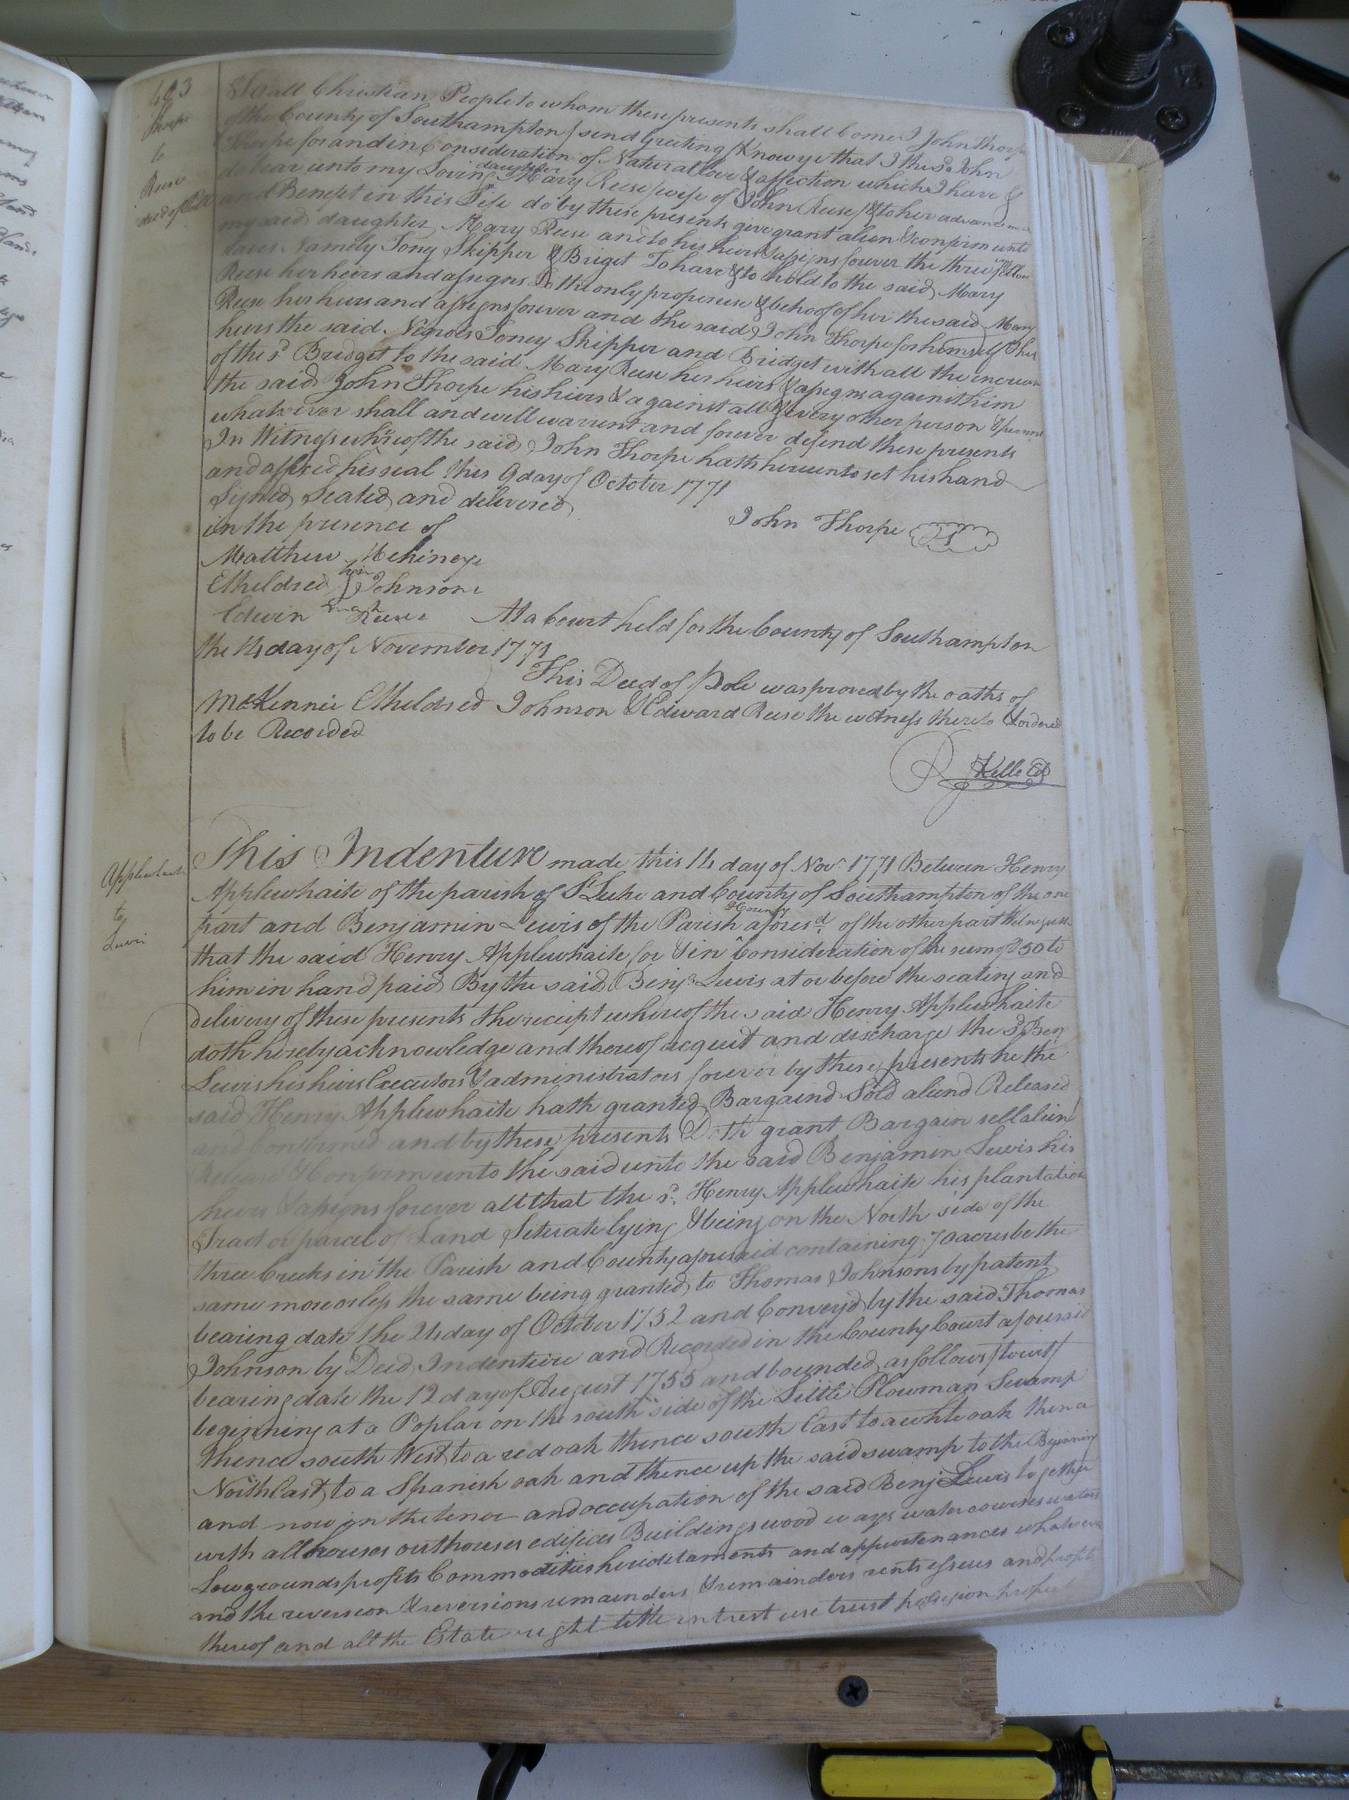 403
Thorpe
to
Reese
deed of Gift
To all Christian People to whom these presents shall Come I John Thorpe
of the County of Southampton send Greeting Know ye that I the sd John
Thorpe for and in Consideration of Natural love & affection which I have &
do bear unto my Loving daughter Mary Reese wife of John Reese & to her advancement
and Benefit in this Life do by these presents give grant alien & confirm unto
my said daughter Mary Reese and to his heirs & assigns forever the three follow
laves Namely Tony Skipper & Briget To have & to hold to the said Mary
Reese her heirs and assigns To the only proper use & behoof of her the said Mary
Reese her heirs and assigns forever and the said John Thorpe for himself & his
heirs the said Negroes Toney Skipper and Bridget with all the increase
of the sd Bridget to the said Mary Reese her heirs & assigns against him
the said John Thorpe his heirs & against all & every other person & persons
whatsoever shall and will warrent and forever defend these presents
In Witness where of the said John Thorpe hath hereunto set his hand
and affixed his seal this 9 day of October 1771
Signed Sealed and delivered
in the presence of
John Thorpe LS
Matthew Mckiney
Etheldred his I Johnson
mark
Edwin Reese At a Court held for the County of Southampton
the 14 day of November 1771
This Deed of Pole was proved by the oaths of
McKennie Etheldred Johnson & Edward Reese the witness thereto & ordered
to be Recorded
R Kello CC
Applewhaite
to
Lewis
This Indenture made this 14 day of Novr 1771 Between Henry
Applewhaite of the parish of St Luke and County of Southampton of the one
part and Benjamin Lewis of the Parish & County aforesd of the other part Witnesseth
that the said Henry Applewhaite for & in Consideration of the sum of £50 to
him in hand paid By the said Benja Lewis at or before the sealing and
delivery of these presents the receipt whereof the said Henry Applewhaite
doth hereby acknowledge and thereof acquit and discharge the sd Benj
Lewis his heirs Executors & administrators forever by these presents he the
said Henry Applewhaite hath granted Bargaind Sold aliend Released
and Confirmed and by these presents Doth grant Bargain sell alien
Release & Confirm unto the said unto the said Benjamin Lewis his
heirs & assigns forever all that the sd Henry Applewhaite his plantation
Tract or parcel of Land Setuate lying & being on the North side of the
three Creeks in the Parish and County aforesaid containing 70 acres be the
same more or less the same being granted to Thomas Johnsons by patent
bearing date the 24 day of October 1752 and Convey'd by the said Thomas
Johnson by Deed Indenture and Recorded in the County Court aforesaid
bearing date the 12 day of August 1755 and bounded as follows towit
beginning at a Poplar on the south side of the Little Plowman Swamp
thence south West to a red oak thence south East to a white oak thence
North East to a Spanish oak and thence up the said swamp to the Beginning
and now in the tenor and occupation of the said Benj Lewis together
with all houses outhouses edifices Buildings wood ways water courses waters
Low grounds profits Commodities hereditaments and appurtenances whatsoever
and the reversion & reversions remainders & remainders rents essues and profits
thereof and all the Estate right title intrest use trust possession property